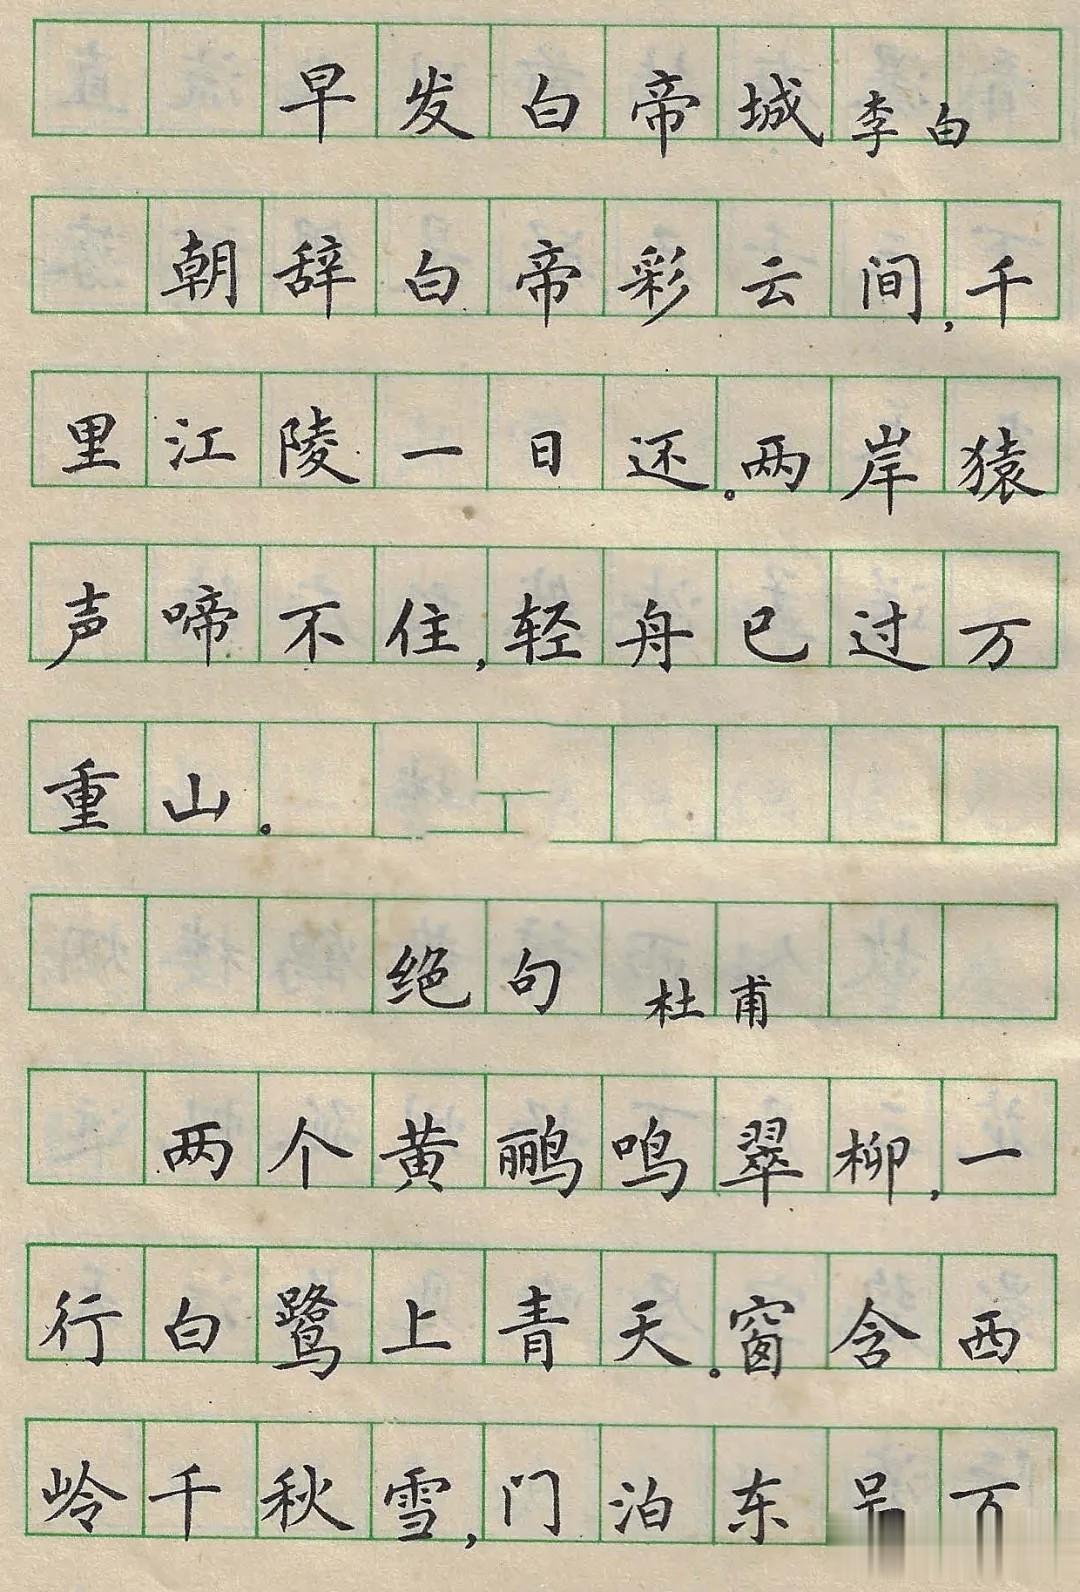 早发白帝城 李白
朝辞白帝彩云间,千
里江陵一日还。两岸猿
声啼不住,轻舟已过万
重山。
绝句 杜甫
两个黄鹂鸣翠柳,一
行白鹭上青天。窗含西
岭千秋雪,门泊东吴万